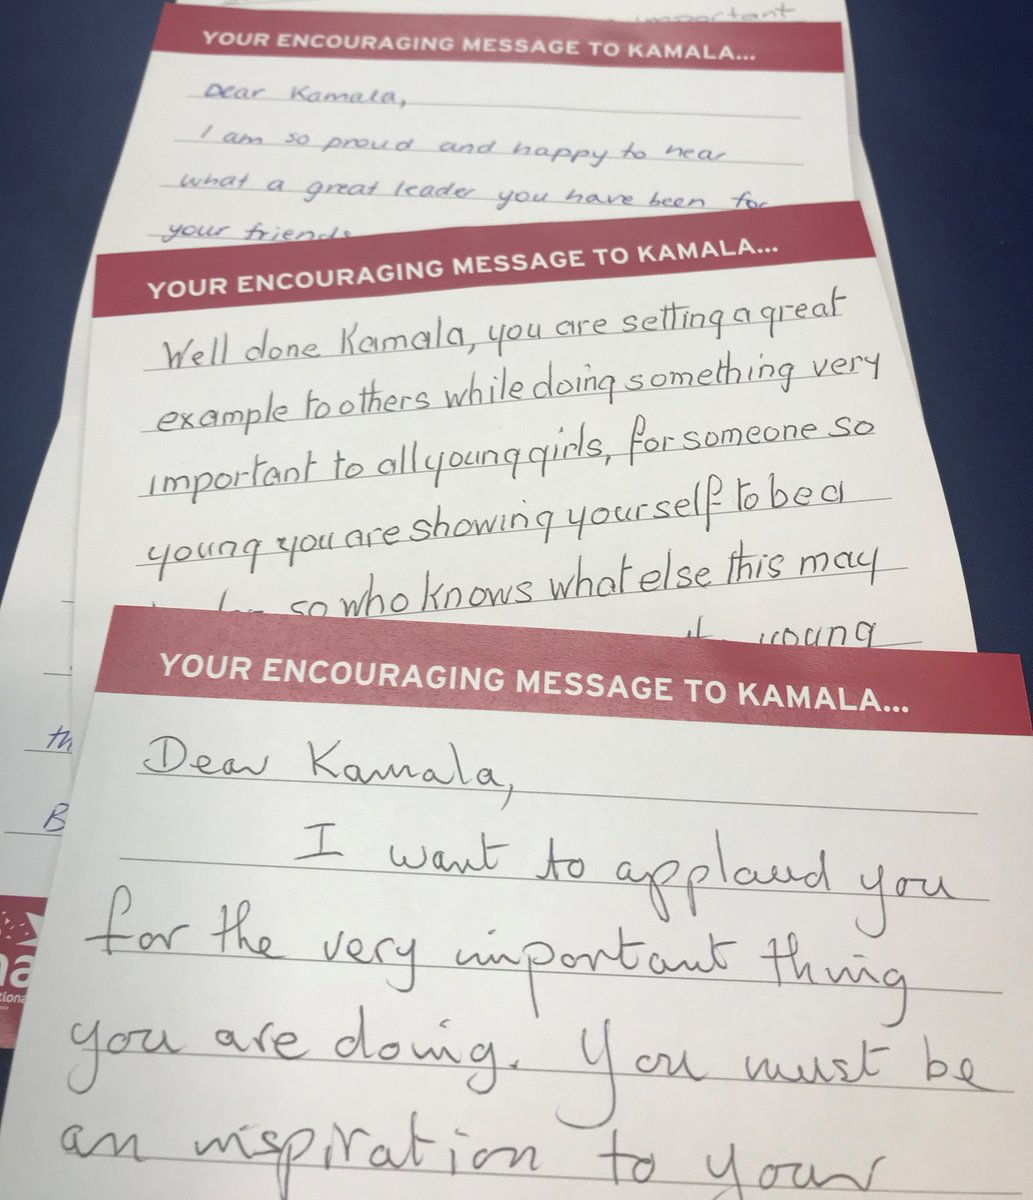 important
YOUR ENCOURAGING MESSAGE TO KAMALA...
Dear Kamala,
I am so proud and happy to hear
what a great leader you have been for
your friends
YOUR ENCOURAGING MESSAGE TO KAMALA...
Well done Kamala, you are setting a great
example to others while doing something very
important to all young girls, for someone so
young you are showing yourself to be a
so who knows what else this may
young
YOUR ENCOURAGING MESSAGE TO KAMALA...
Dear Kamala,
I want to applaud you
for the very important thing
you are doing. You must be
an inspiration to your
th
B
na
tiona